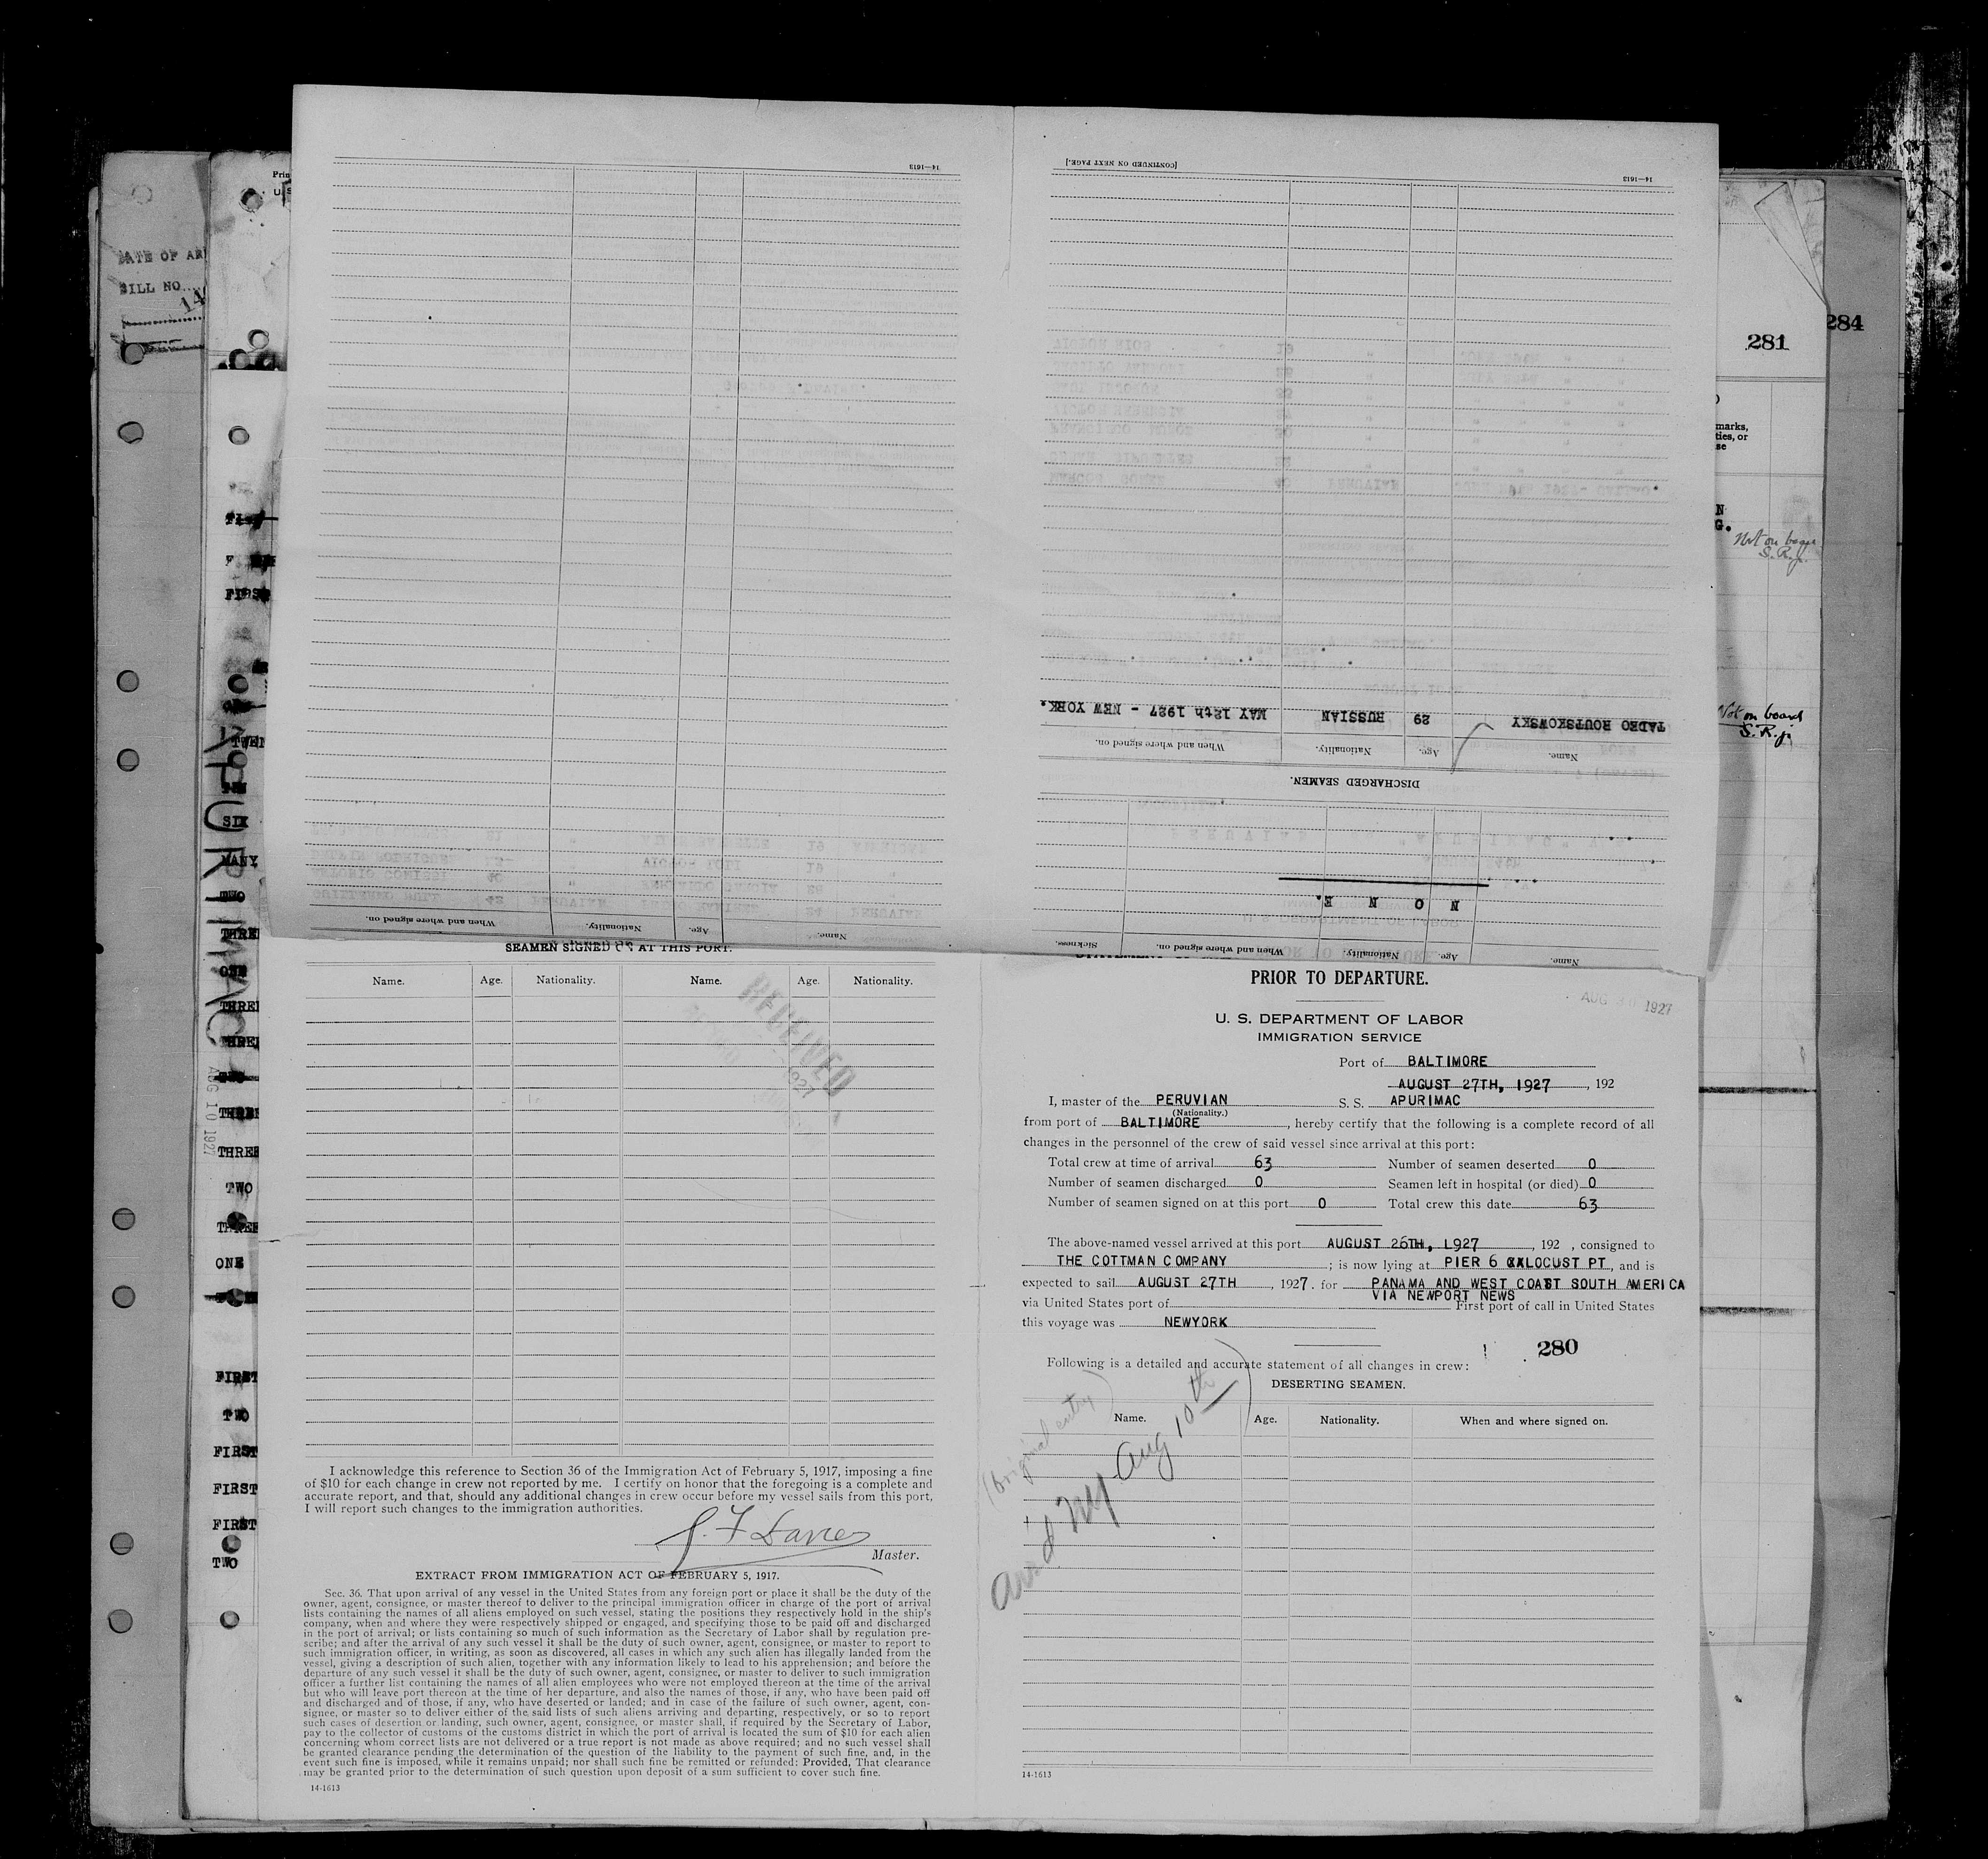 [CONTINUED ON NEXT PAGE.]
14—1613
14—1613
DATE OF AR
BILL NO.
14
Prin
U. S
284
281
marks,
ties, or
se
N
G.
Not on board
S. R. jr.
Not on board
S. R. jr.
APURIMAC
AUG 10 1927
FIRST
SIX
MANY
TWO
THREE
ONE
THREE
THREE
THREE
THREE
TWO
THREE
ONE
FIRST
TWO
FIRST
FIRST
FIRST
TWO
Name. Age. Nationality. When and where signed on. Sickness.
N O N E.
DISCHARGED SEAMEN.
Name. Age. Nationality. When and where signed on.
TADEO ROUTSKOWSKY 29 RUSSIAN MAY 12th 1927 - NEW YORK.
Name. Age. Nationality. When and where signed on.
SEAMEN SIGNED ON AT THIS PORT.
Name. Age. Nationality. Name. Age. Nationality.
RECEIVED
1927
I acknowledge this reference to Section 36 of the Immigration Act of February 5, 1917, imposing a fine
of $10 for each change in crew not reported by me. I certify on honor that the foregoing is a complete and
accurate report, and that, should any additional changes in crew occur before my vessel sails from this port,
I will report such changes to the immigration authorities.
Master.
EXTRACT FROM IMMIGRATION ACT OF FEBRUARY 5, 1917.
Sec. 36. That upon arrival of any vessel in the United States from any foreign port or place it shall be the duty of the
owner, agent, consignee, or master thereof to deliver to the principal immigration officer in charge of the port of arrival
lists containing the names of all aliens employed on such vessel, stating the positions they respectively hold in the ship's
company, when and where they were respectively shipped or engaged, and specifying those to be paid off and discharged
in the port of arrival; or lists containing so much of such information as the Secretary of Labor shall by regulation pre-
scribe; and after the arrival of any such vessel it shall be the duty of such owner, agent, consignee, or master to report to
such immigration officer, in writing, as soon as discovered, all cases in which any such alien has illegally landed from the
vessel, giving a description of such alien, together with any information likely to lead to his apprehension; and before the
departure of any such vessel it shall be the duty of such owner, agent, consignee, or master to deliver to such immigration
officer a further list containing the names of all alien employees who were not employed thereon at the time of the arrival
but who will leave port thereon at the time of her departure, and also the names of those, if any, who have been paid off
and discharged and of those, if any, who have deserted or landed; and in case of the failure of such owner, agent, con-
signee, or master so to deliver either of the said lists of such aliens arriving and departing, respectively, or so to report
such cases of desertion or landing, such owner, agent, consignee, or master shall, if required by the Secretary of Labor,
pay to the collector of customs of the customs district in which the port of arrival is located the sum of $10 for each alien
concerning whom correct lists are not delivered or a true report is not made as above required; and no such vessel shall
be granted clearance pending the determination of the question of the liability to the payment of such fine, and, in the
event such fine is imposed, while it remains unpaid; nor shall such fine be remitted or refunded: Provided, That clearance
may be granted prior to the determination of such question upon deposit of a sum sufficient to cover such fine.
14-1613
PRIOR TO DEPARTURE.
AUG 30 1927
U. S. DEPARTMENT OF LABOR
IMMIGRATION SERVICE
Port of BALTIMORE
AUGUST 27TH, 1927, 192
I, master of the PERUVIAN S. S. APURIMAC
(Nationality.)
from port of BALTIMORE, hereby certify that the following is a complete record of all
changes in the personnel of the crew of said vessel since arrival at this port:
Total crew at time of arrival 63 Number of seamen deserted 0
Number of seamen discharged 0 Seamen left in hospital (or died) 0
Number of seamen signed on at this port 0 Total crew this date 63
The above-named vessel arrived at this port AUGUST 26TH, 1927, 192 , consigned to
THE COTTMAN COMPANY; is now lying at PIER 6 LOCUST PT, and is
expected to sail AUGUST 27TH, 1927. for PANAMA AND WEST COAST SOUTH AMERICA
VIA NEWPORT NEWS
via United States port of First port of call in United States
this voyage was NEWYORK
280
Following is a detailed and accurate statement of all changes in crew:
DESERTING SEAMEN.
Name. Age. Nationality. When and where signed on.
(Original entry)
Arr'd NY Aug 10th
14-1613